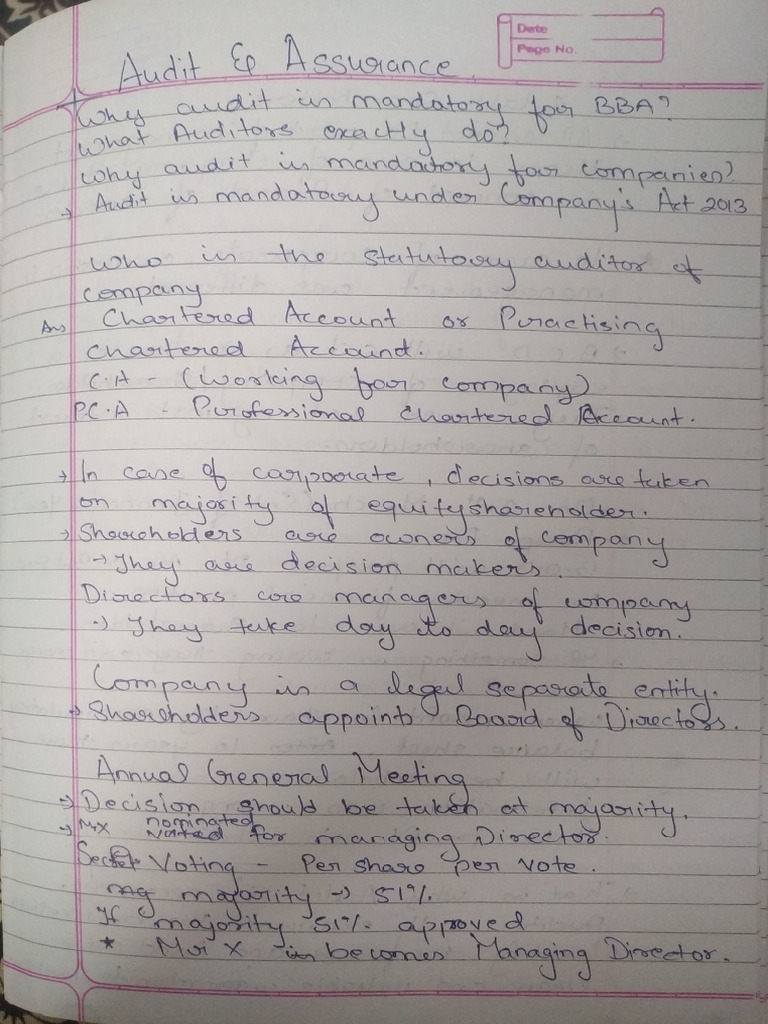 Date
Page No.
Audit & Assurance
Why audit is mandatory for BBA?
What Auditors exactly do?
Why audit is mandatory for companies?
→ Audit is mandatory under Company's Act 2013
Who is the statutory auditor of
company
Ans Chartered Account or Practising
Chartered Accaund.
C.A - (Working for company)
P.C.A - Professional Chartered Account.
→ In case of carporate, decisions are taken
on majority of equityshareholder.
→ Shareholders are owners of company
→ They are decision makers.
Directors are managers of company
→ They take day to day decision.
Company is a legal separate entity.
→ Shareholders appoint Board of Directors.
Annual General Meeting
→ Decision should be taken at majority.
→ Mr X nominated for managing Director.
Secret Voting - Per share per vote.
majority → 51%
If majority 51% approved
* Mr X becomes Managing Director.